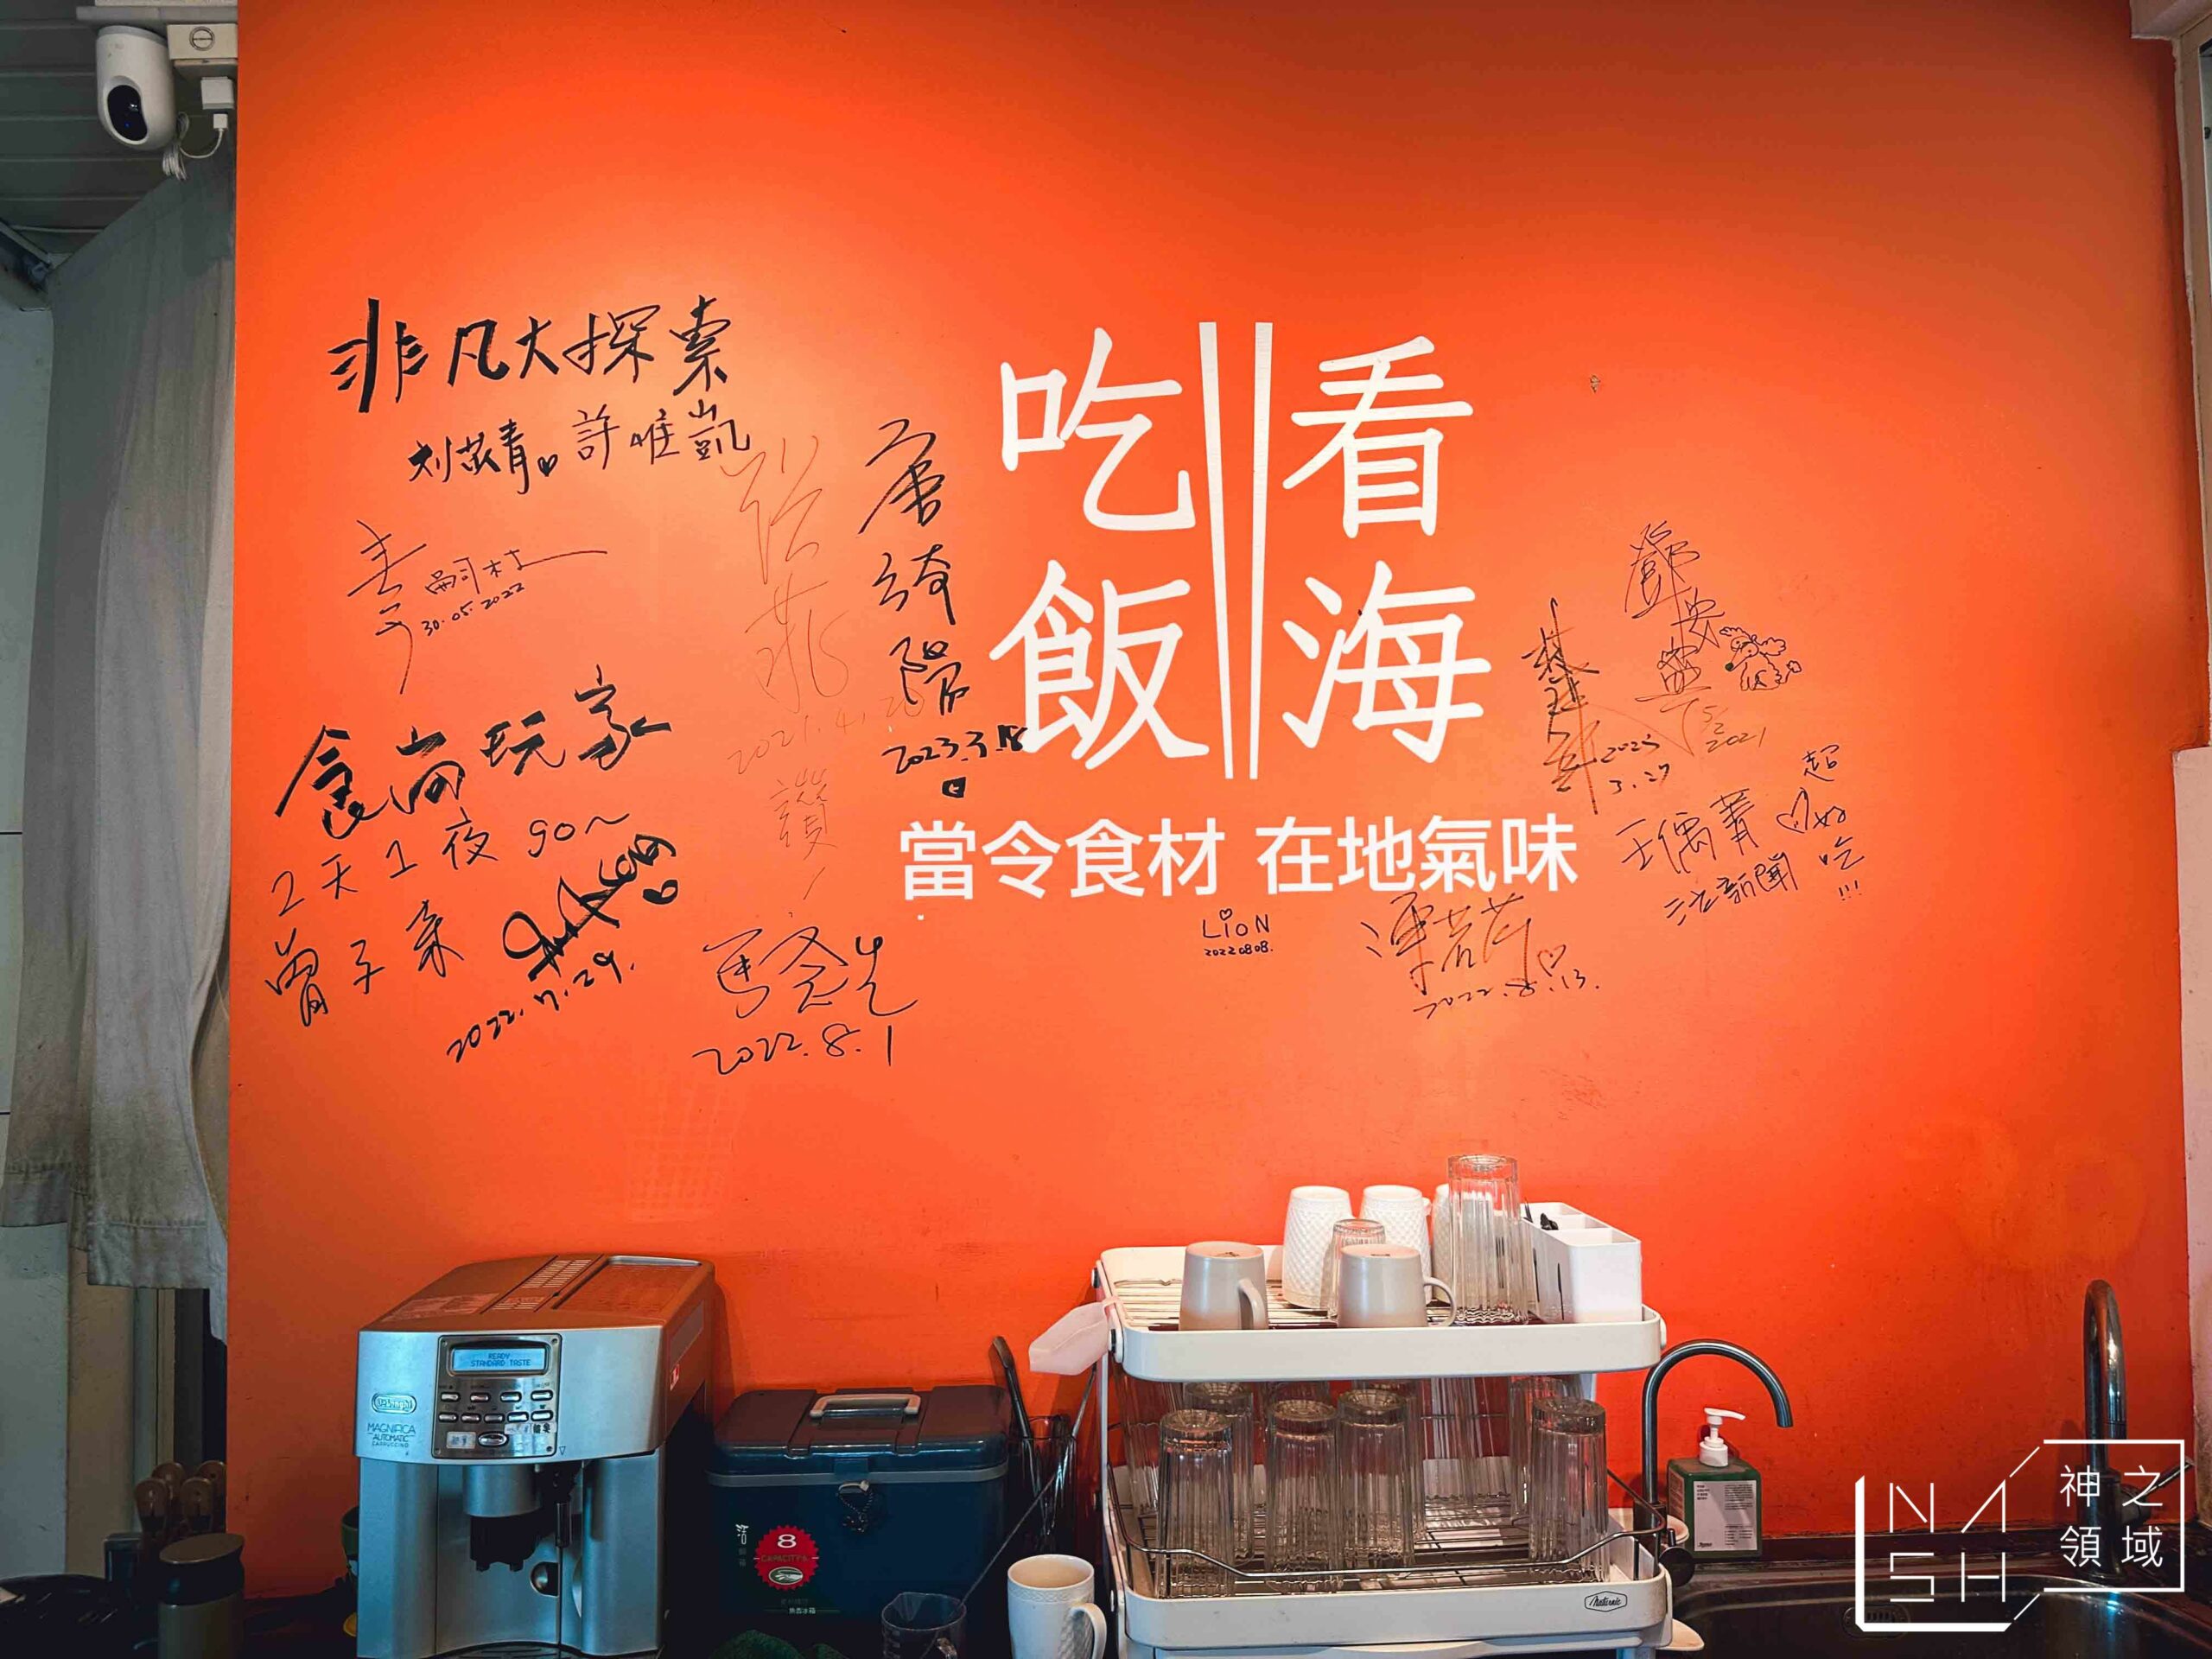 非凡大探索
刘苡青 許唯凱
30.05.2022
食尚玩家
2天1夜 go~
曾子余
2022.7.29.
2021.4.20
讚!
唐綺陽
2023.3.18
2022.8.1
吃飯 看海
當令食材 在地氣味
LION
20220808.
2022.8.13.
2023
3.27
5/2
2021
王偊菁
三立新聞
超
好
吃
!!!
READY
STANDARD TASTE
DeLonghi
MAGNIFICA
AUTOMATIC
CAPPUCCINO
8
CAPACITY/L
Naturnic
NASH
神之
領域